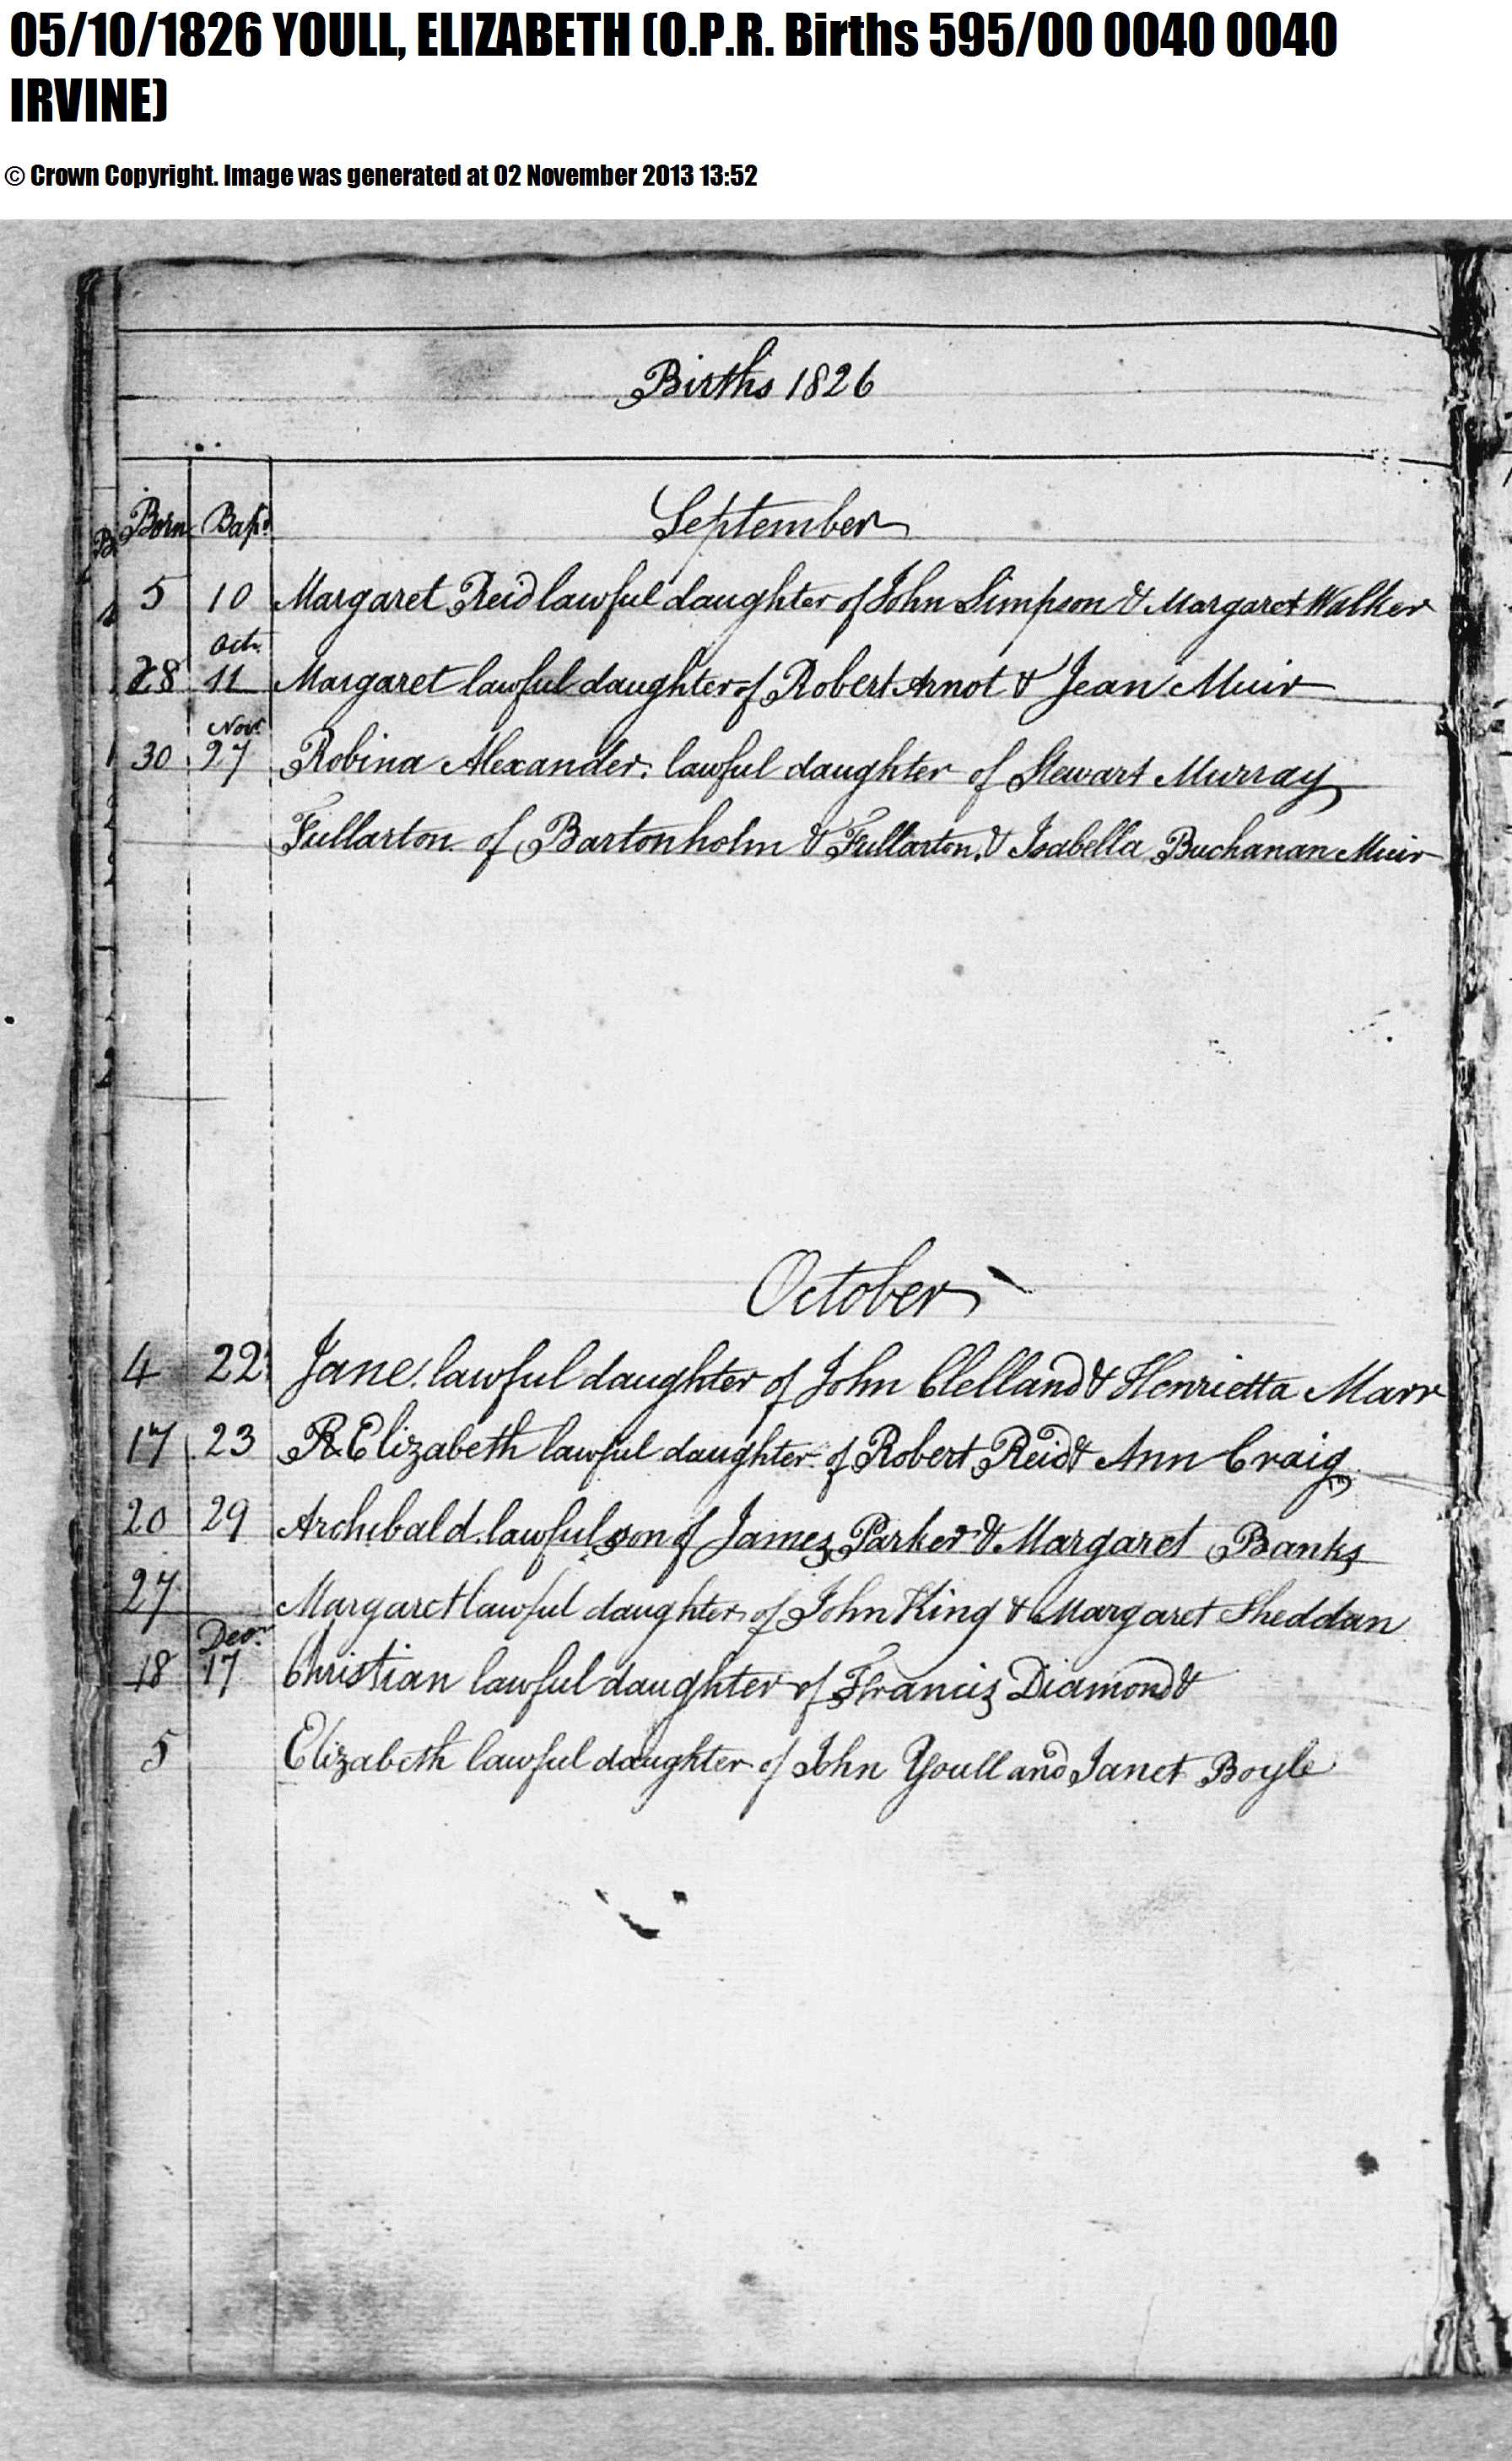 05/10/1826 YOULL, ELIZABETH (O.P.R. Births 595/00 0040 0040
IRVINE)
© Crown Copyright. Image was generated at 02 November 2013 13:52
Births 1826
Born Bap.d September
5 10 Margaret Reid lawful daughter of John Simpson & Margaret Walker
Oct.
28 11 Margaret lawful daughter of Robert Arnot & Jean Muir
Novr.
30 27 Robina Alexander. lawful daughter of Stewart Murray
Fullarton of Bartonholm & Fullarton, & Isabella Buchanan Muir
October
4 22 Jane lawful daughter of John Clelland & Henrietta Marr
17 23 R Elizabeth lawful daughter of Robert Reid & Ann Craig
20 29 Archibald lawful son of James Parker & Margaret Banks
27 Margaret lawful daughter of John King & Margaret Sheddan
Decr.
18 17 Christian lawful daughter of Francis Diamond &
5 Elizabeth lawful daughter of John Youll and Janet Boyle